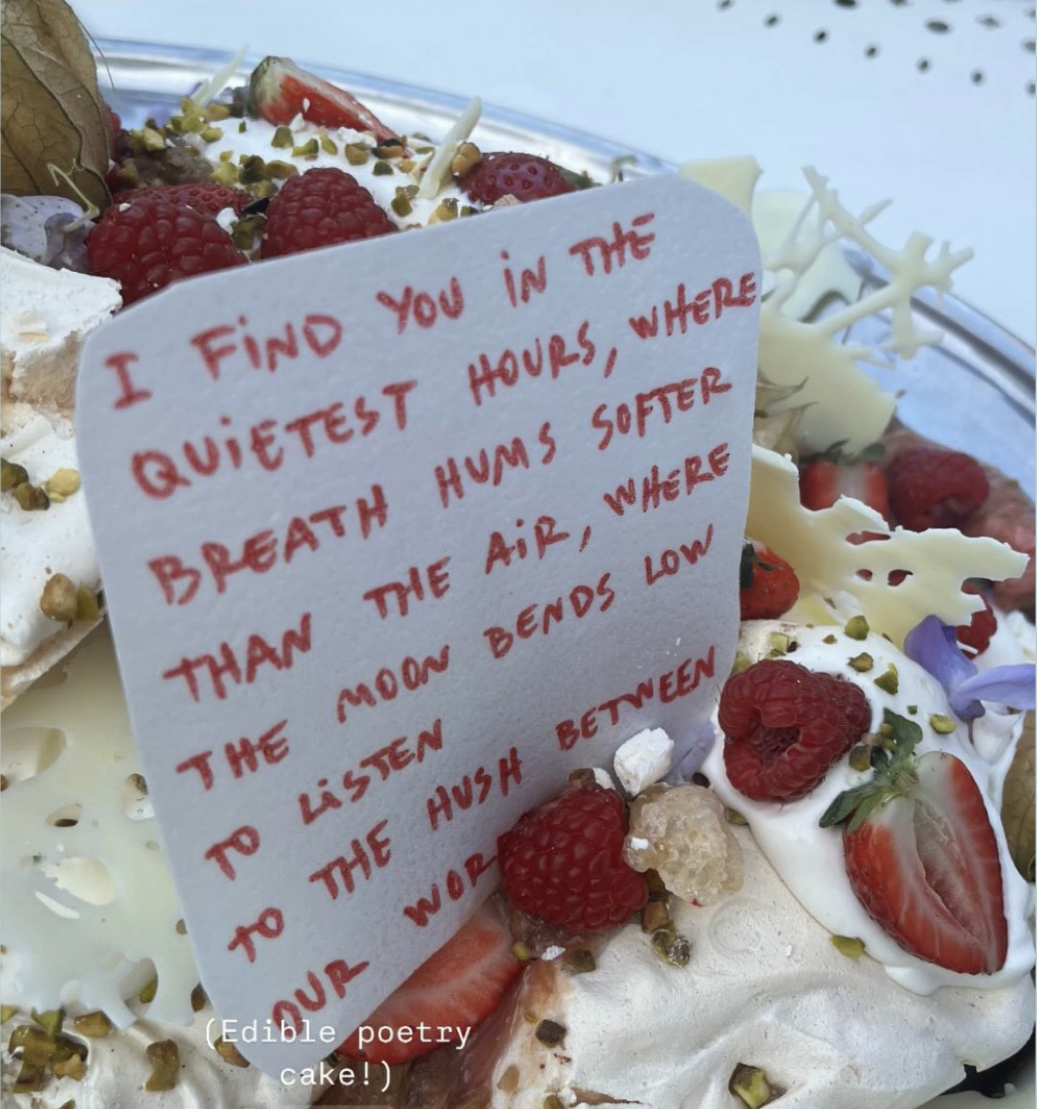 I FIND YOU IN THE
QUIETEST HOURS, WHERE
BREATH HUMS SOFTER
THAN THE AIR, WHERE
THE MOON BENDS LOW
TO LISTEN
TO THE HUSH BETWEEN
OUR
(Edible poetry
cake!)